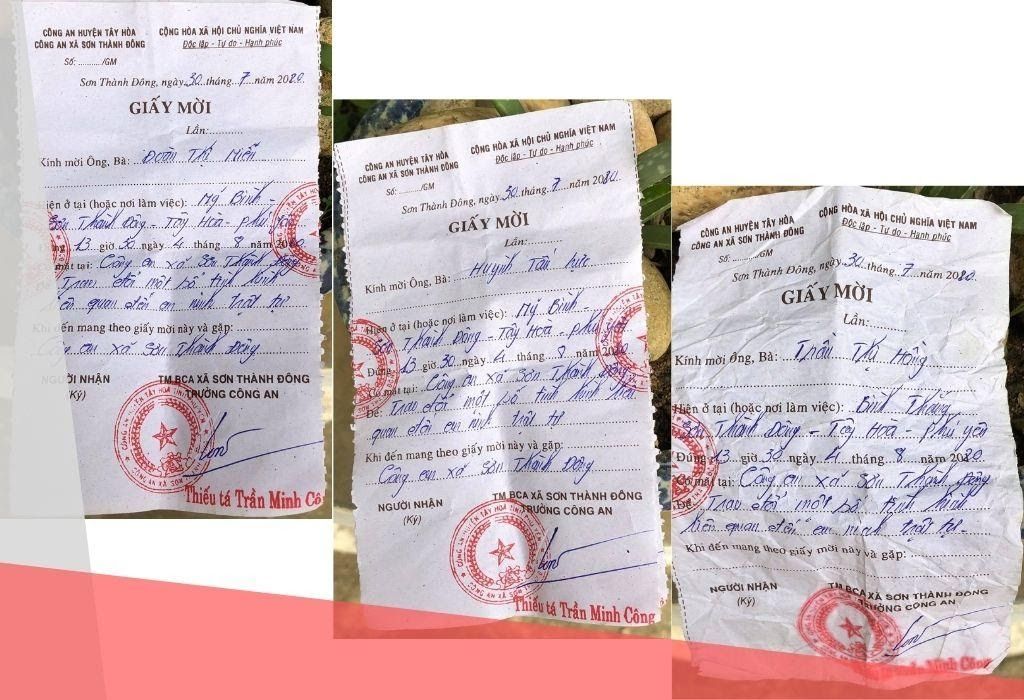 CÔNG AN HUYỆN TÂY HÒA
CÔNG AN XÃ SƠN THÀNH ĐÔNG
Số: ........../GM
CỘNG HÒA XÃ HỘI CHỦ NGHĨA VIỆT NAM
Độc lập - Tự do - Hạnh phúc
Sơn Thành Đông, ngày 30 tháng 7 năm 2020
GIẤY MỜI
Lần:...........
Kính mời Ông, Bà: Đoàn Thị Miễn
Hiện ở tại (hoặc nơi làm việc): Mỹ Bình -
Sơn Thành Đông - Tây Hoà - Phú Yên
Đúng 13 giờ 30 ngày 4 tháng 8 năm 2020
Có mặt tại: Công an xã Sơn Thành Đông
Trao đổi một số tình hình
liên quan đến an ninh trật tự
Khi đến mang theo giấy mời này và gặp:
Công an xã Sơn Thành Đông
NGƯỜI NHẬN
(Ký)
TM.BCA XÃ SƠN THÀNH ĐÔNG
TRƯỞNG CÔNG AN
Thiếu tá Trần Minh Công
CÔNG AN HUYỆN TÂY HÒA
CÔNG AN XÃ SƠN THÀNH ĐÔNG
Số: ........../GM
CỘNG HÒA XÃ HỘI CHỦ NGHĨA VIỆT NAM
Độc lập - Tự do - Hạnh phúc
Sơn Thành Đông, ngày 30 tháng 7 năm 2020
GIẤY MỜI
Lần:...........
Kính mời Ông, Bà: Huỳnh Tấn Lực
Hiện ở tại (hoặc nơi làm việc): Mỹ Bình -
Sơn Thành Đông - Tây Hoà - Phú Yên
Đúng 13 giờ 30 ngày 4 tháng 8 năm 2020
Có mặt tại: Công an xã Sơn Thành Đông
Để: Trao đổi một số tình hình liên
quan đến an ninh trật tự
Khi đến mang theo giấy mời này và gặp:
Công an xã Sơn Thành Đông
NGƯỜI NHẬN
(Ký)
TM.BCA XÃ SƠN THÀNH ĐÔNG
TRƯỞNG CÔNG AN
Thiếu tá Trần Minh Công
CÔNG AN HUYỆN TÂY HÒA
CÔNG AN XÃ SƠN THÀNH ĐÔNG
Số: ........../GM
CỘNG HÒA XÃ HỘI CHỦ NGHĨA VIỆT NAM
Độc lập - Tự do - Hạnh phúc
Sơn Thành Đông, ngày 30 tháng 7 năm 2020
GIẤY MỜI
Lần:...........
Kính mời Ông, Bà: Trần Thị Hồng
Hiện ở tại (hoặc nơi làm việc): Bình Thắng
Sơn Thành Đông - Tây Hoà - Phú Yên
Đúng 13 giờ 30 ngày 4 tháng 8 năm 2020
Có mặt tại: Công an xã Sơn Thành Đông
Để: Trao đổi một số tình hình
liên quan đến an ninh trật tự -
Khi đến mang theo giấy mời này và gặp:
NGƯỜI NHẬN
(Ký)
TM.BCA XÃ SƠN THÀNH ĐÔNG
TRƯỞNG CÔNG AN
Trần Minh Công